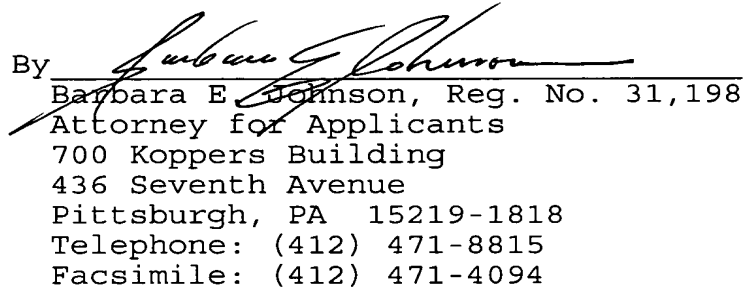 By Barbara E. Johnson
Barbara E. Johnson, Reg. No. 31,198
Attorney for Applicants
700 Koppers Building
436 Seventh Avenue
Pittsburgh, PA 15219-1818
Telephone: (412) 471-8815
Facsimile: (412) 471-4094